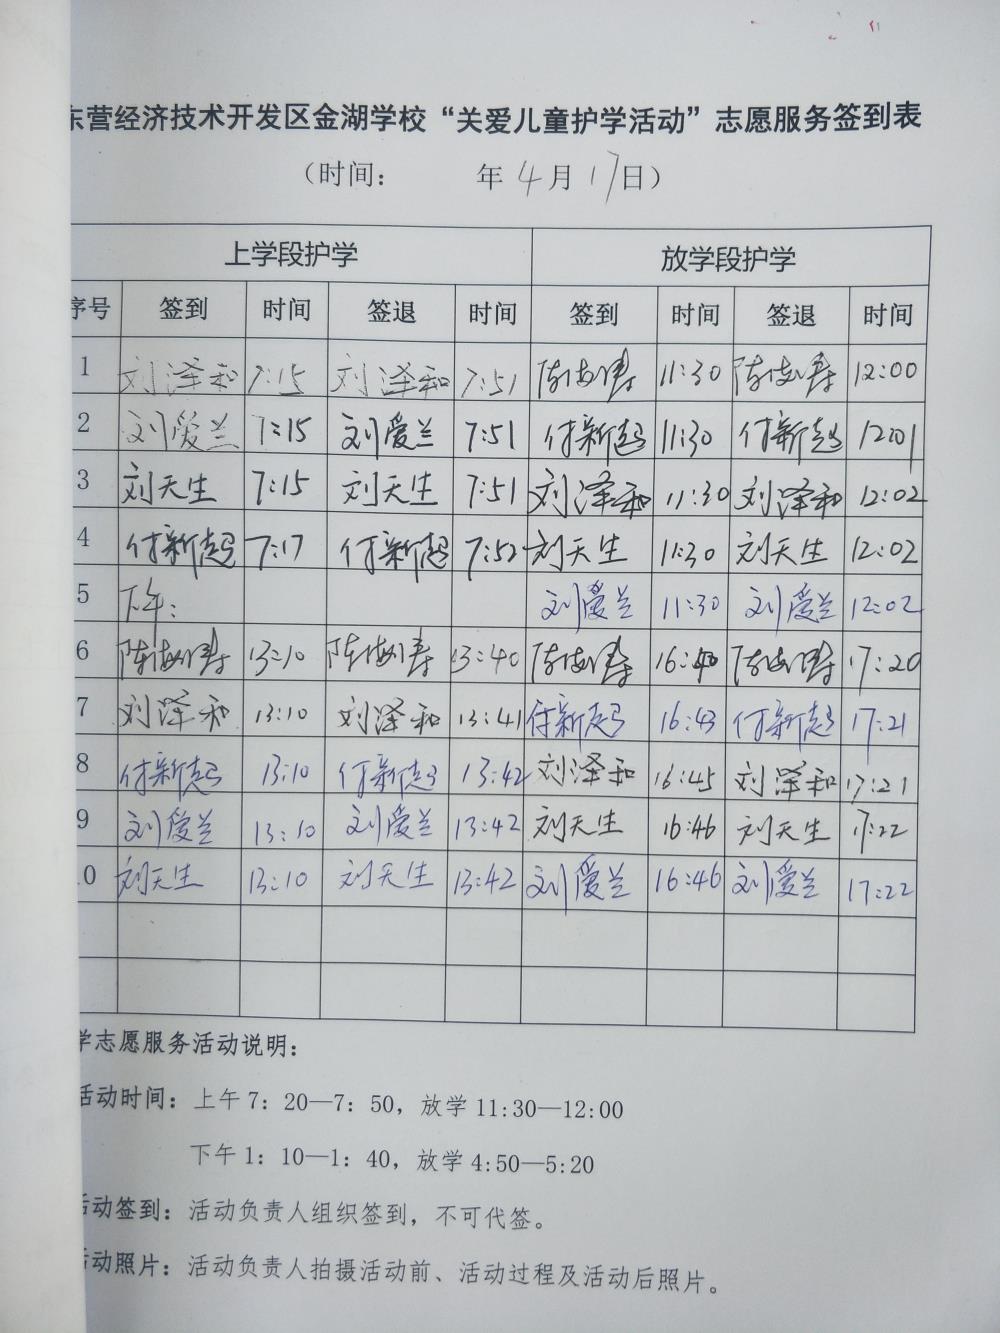 东营经济技术开发区金湖学校“关爱儿童护学活动”志愿服务签到表
（时间： 年 4 月 17 日）
上学段护学 放学段护学
序号 签到 时间 签退 时间 签到 时间 签退 时间
1 刘泽和 7:15 刘泽和 7:51 陈 11:30 陈 12:00
2 刘爱兰 7:15 刘爱兰 7:51 付新起 11:30 付新起 12:01
3 刘天生 7:15 刘天生 7:51 刘泽和 11:30 刘泽和 12:02
4 付新起 7:17 付新起 7:52 刘天生 11:30 刘天生 12:02
5 下午： 刘爱兰 11:30 刘爱兰 12:02
6 陈 13:10 陈 13:40 陈 16:40 陈 17:20
7 刘泽和 13:10 刘泽和 13:41 付新起 16:43 付新起 17:21
8 付新起 13:10 付新起 13:42 刘泽和 16:45 刘泽和 17:21
9 刘爱兰 13:10 刘爱兰 13:42 刘天生 16:46 刘天生 17:22
10 刘天生 13:10 刘天生 13:42 刘爱兰 16:46 刘爱兰 17:22
学志愿服务活动说明：
活动时间：上午 7：20—7：50，放学 11:30—12:00
下午 1：10—1：40，放学 4:50—5:20
活动签到：活动负责人组织签到，不可代签。
活动照片：活动负责人拍摄活动前、活动过程及活动后照片。